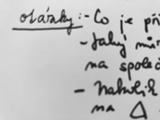 otázky: - Co je pří
- Jaký
na společ
- Nakolik
na Δ